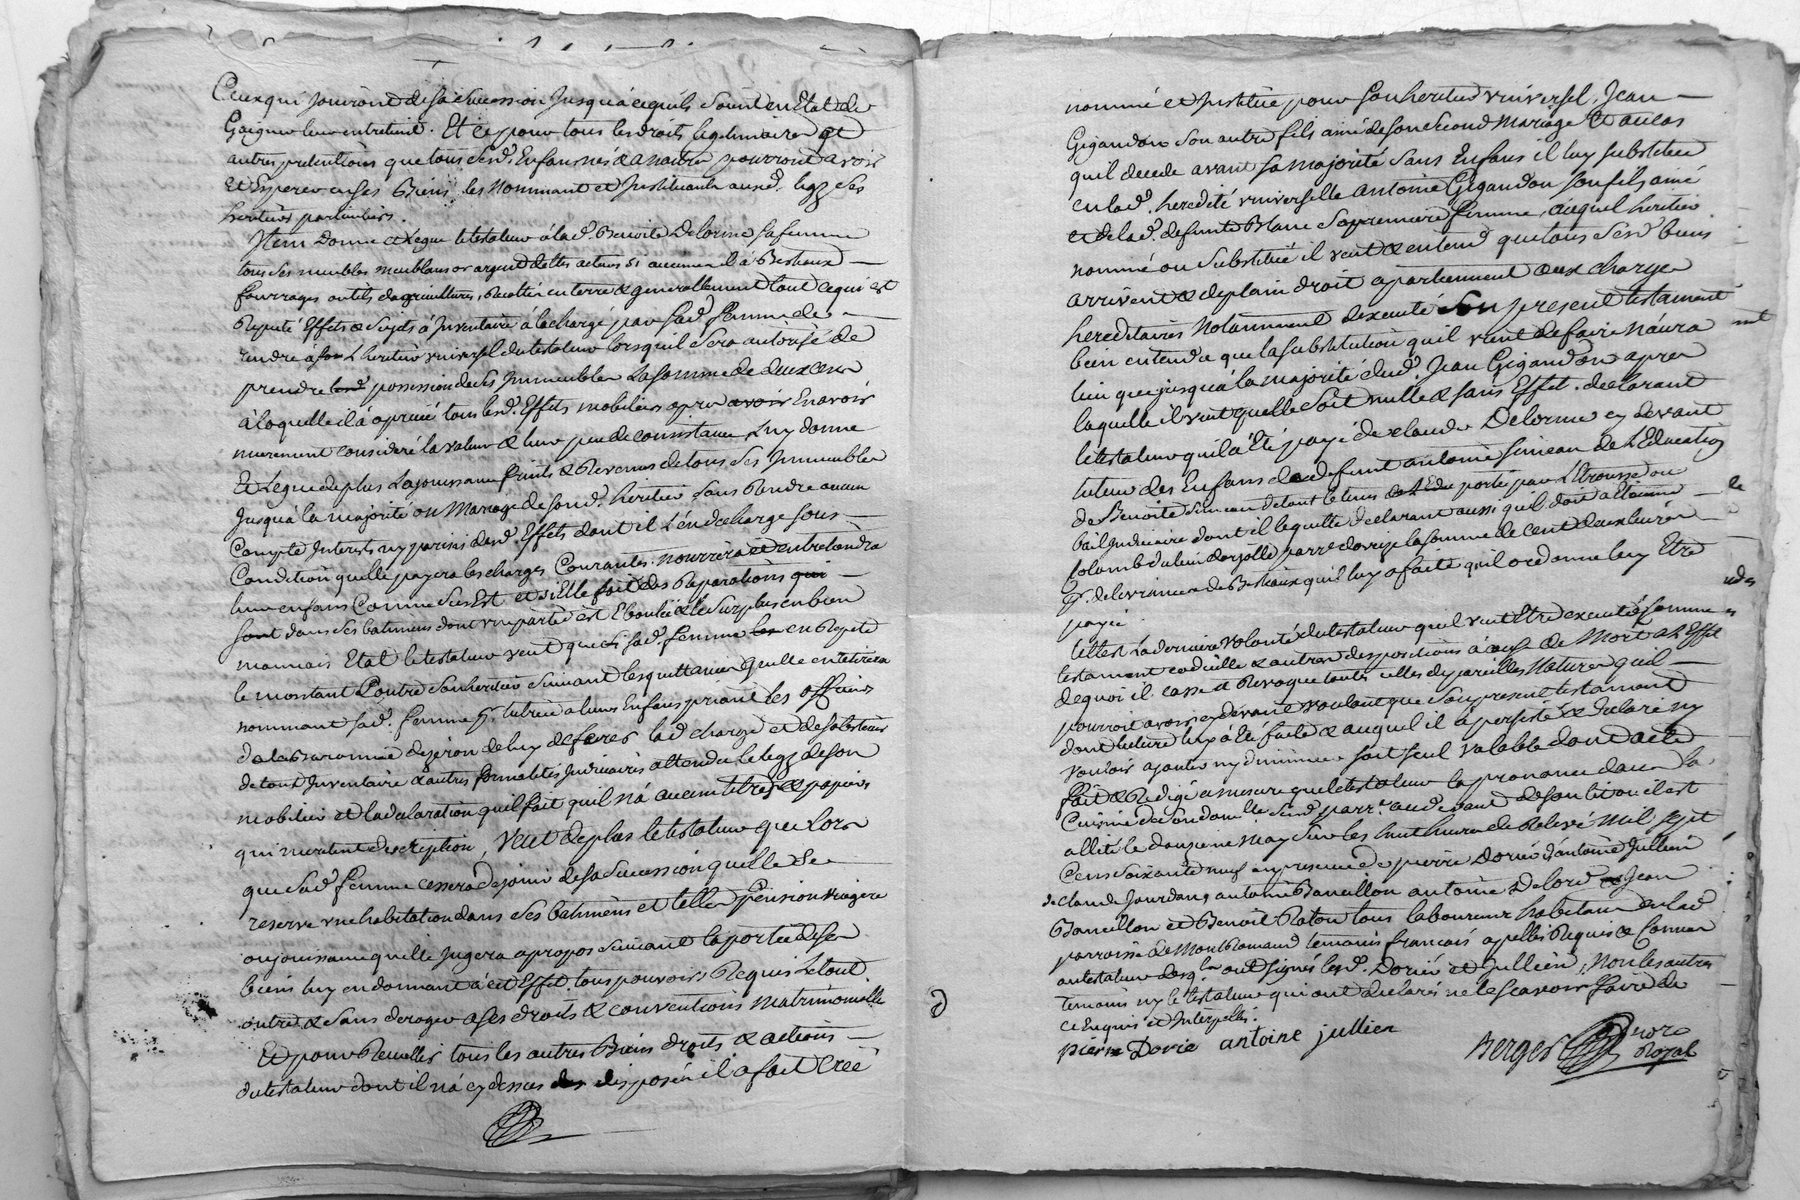 Ceux qui Jouiront de sa Sucession Jusqu'a ce quils Soint en Etat de
Gaigner leur entretient. Et ce pour tous les droits legitimaires et
autres pretentions que tous Sesd. Enfans nés & a naitre pourront avoir
Et Esperer en Ses Biens les Nommant et Instituant ausd. legz Ses
heritiers particuliers.
Item Donne et legue le testateur à lad. Benoite Delorme Sa femme
tous Ses meubles meublans or argent dettes actives Si aucunes il à Bestiaux
fourrages outils dagricultures, Recoltes en terre & generallement tout ce qui est
Reputé Effets & Sujets à Inventaire à la charge par Sad. femme de
rendre a son heritier universel du testateur lorsquil Sera autorisé de
prendre possession de Ses Immeubles la somme de deux cens
à laquelle il à aprecié tous lesd. Effets mobiliers apres avoir En avoir
murement consideré la valeur & leur peu de consistance, Luy donne
Et Legue de plus la jouissance fruits & Revenus de tous Ses Immeubles
Jusqua la majorité ou Mariage de Sond. heritier Sans Rendre aucun
Compte Interests ny parisis desd. Effets dont il L'en decharge Sous
Condition quelle payera les charges Courantes nourrira et entretiendra
leurs enfans Comme dessus Est et si Elle fait des Reparations qui
sont dans Ses batimens dont une partie est Eboulée & le Surplus en bien
mauvais Etat le testateur veut que Sad. femme en Repete
le montant Contre Son heritier Suivant les quittances quelle en retirera
nommant Sad. femme pr. tutrice a leurs Enfans priant les officiers
de la Baronnie de jeron de luy deferer lad. charge et de Sabstenir
de tout Inventaire & autres formalités Judiciaires attendu le legz de Son
mobilier et la declaration quil fait quil n'à aucuns titres & papiers
qui meritent description, Veut de plus le testateur que lors
que Sad. femme cessera de jouir de sa Sucession quelle Se
reserve une habitation dans Ses batimens et telle pension viagere
ou jouissance quelle Jugera apropos Suivant la portée de Ses
biens luy en donnant à cet Effet tous pouvoirs Requis Le tout
outre & Sans deroger a Ses droits & conventions Matrimonialle
Et pour Recueillir tous les autres Biens droits & actions
du testateur dont il n'à cy dessus disposés il a fait Créé
nommé et Institué pour Son heritier universel Jean
Gigandon Son autre fils ainé de Son Second Mariage Et au cas
quil decede avant Sa majorité Sans Enfans il luy Substitue
en lad. heredité universelle Antoine Gigandon Son fils ainé
et de lad. defunte Blanc Sa premiere femme, auquel heritier
nommé ou Substitué il veut & entend que tous Sesd. biens
arrivent & de plain droit apartiennent aux charges
hereditaires Notamment dexecuté Son present testament
bien entendu que la Substitution quil vient de faire N'aura
lieu que jusqu'à la majorité dud. Jean Gigandon apres
laquelle il veut quelle Soit nulle & Sans Effet. declarant
le testateur quil a Eté payé de claude Delorme cy devant
tuteur des Enfans de defunt antoine Simean de L'Education
de Benoite Simean detout le tems porté par L'trousse ou
bail Judiciaire dont il le quitte declarant aussi quil doit a Etienne
Colomb du lieu parre. la somme de cent deux livres
pr. delivrance de Bestiaux quil luy a faite quil ordonne luy Etre
payée
telle est La derniere volonté du testateur quil veut Etre executée comme
testament codicille & autres dispositions à cause de Mort a L'Effet
dequoi il casse et Revoque toutes celles de pareilles Natures quil
pourroit avoir cy devant voulant que Son present testament
dont lecture luy à Eté faite & auquel il à persisté & declaré ny
vouloir ajouter ny diminuer Soit Seul valable dont acte
fait & Redigé a mesure que le testateur la prononcé dans la
Cuisine de Son domlle. Sisd. parre. au devant de Son lit ou il est
allité le douze may Sur les huit heures de Relevé Mil Sept
Cens Soixante neuf en presence de pierre Dorier d'antoine Jullien
de claude Jourdan, antoine Bancillon antoine Delord Jean
Bancillon et Benoit Raton tous laboureurs habitans en lad.
parroisse de Mont Romand temoins francais apellés Requis & Connus
au testateur desqls. ont Signés lesd. Dorier et Jullien, Non les autres
temoins ny le testateur qui ont declarés ne le Scavoir faire de
ce Enquis et Interpellés.
pierre Dorie antoine jullien
Berger nore
Royal